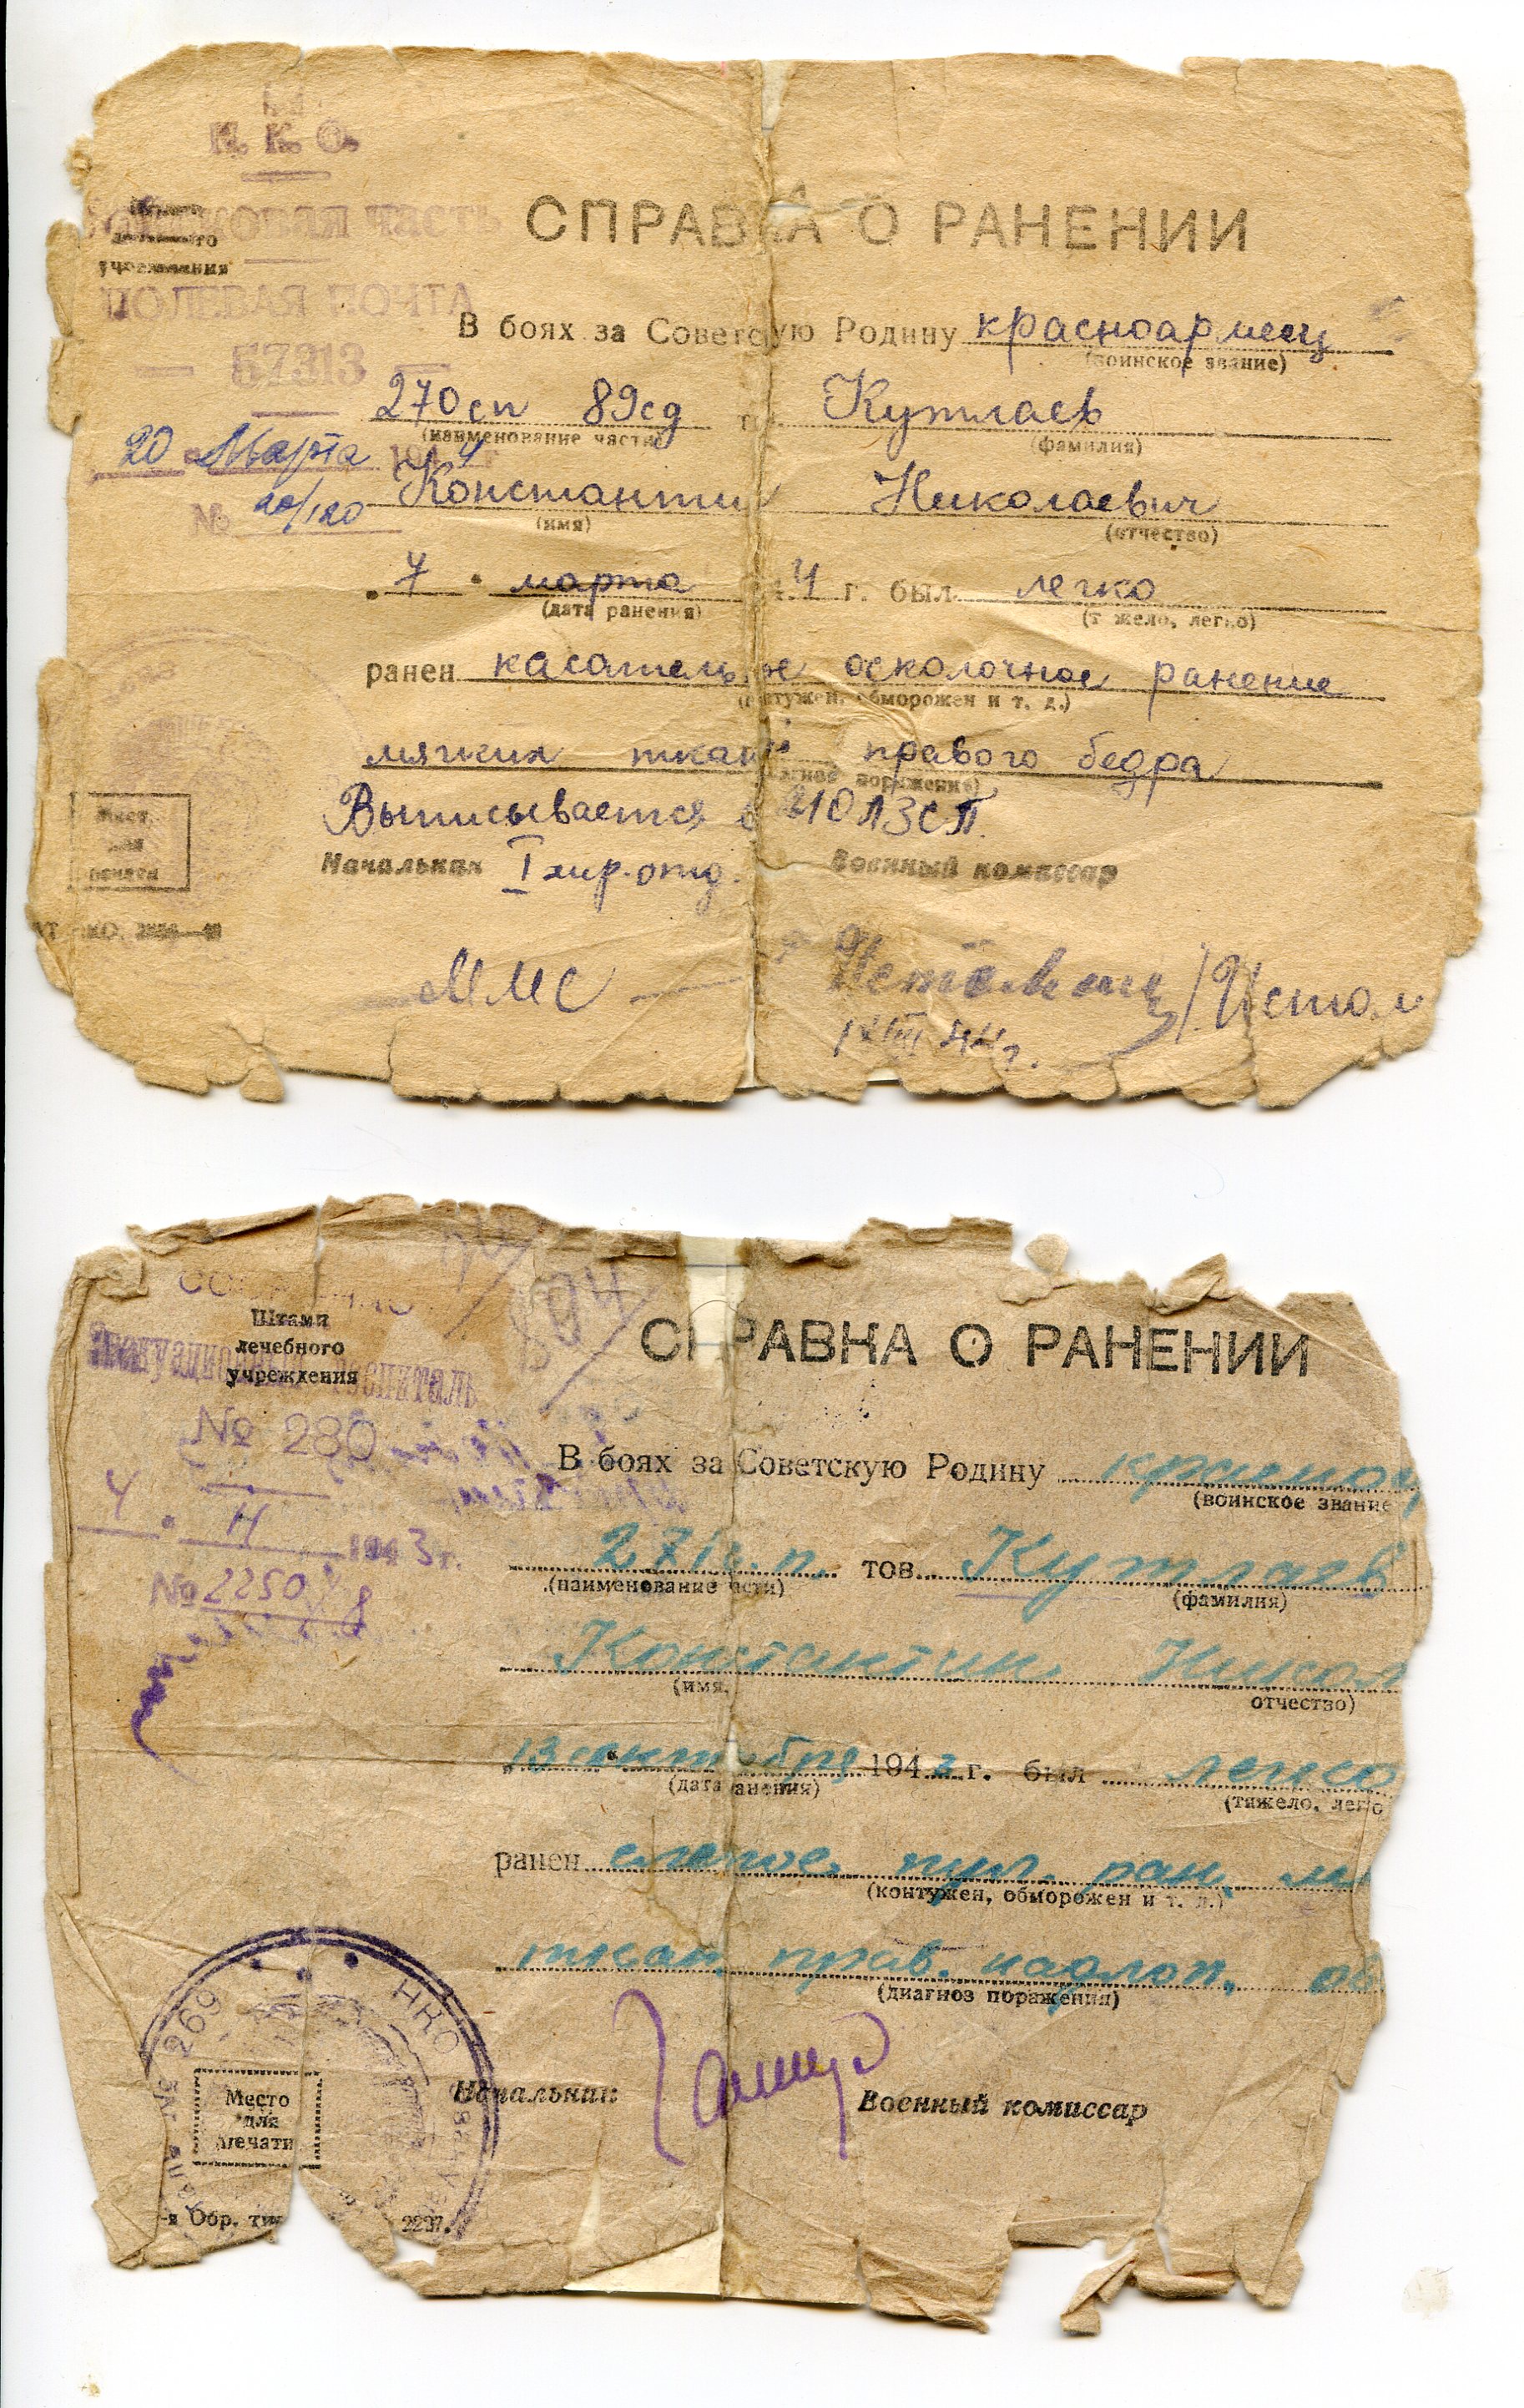 Н. К. О.
ПОЛЕВАЯ ПОЧТА
57313
учреждения
20 Марта 1944
№ 20/120
СПРАВКА О РАНЕНИИ
В боях за Советскую Родину красноармеец
(воинское звание)
270 сп 89 сд Кутлаев
(наименование части) (фамилия)
Константин Николаевич
(имя) (отчество)
7 марта 44 г. был легко
(дата ранения) (тяжело, легко)
ранен касательное осколочное ранение
(контужен, обморожен и т. д.)
мягких ткан правого бедра
Выписывается в 210 АЗСП.
Начальник I хир. отд. Военный комиссар
Место
для
печати
ММС
44 г.
Штамп
лечебного
учреждения
Эвакуационный госпиталь
№ 280
4 1943 г.
№ 2250
СПРАВКА О РАНЕНИИ
В боях за Советскую Родину красноа
(воинское звание
271 с.п. тов. Кутлаев
(наименование части) (фамилия)
Константин Никол
(имя, отчество)
13 сентября 1943 г. был легко
(дата ранения) (тяжело, легко
ранен слепое пул. ран. м
(контужен, обморожен и т. д.)
ткан. прав. надлоп. об
(диагноз поражения)
Начальник Военный комиссар
НКО
269
Место
для
печати
-я Обр. тип
2237.